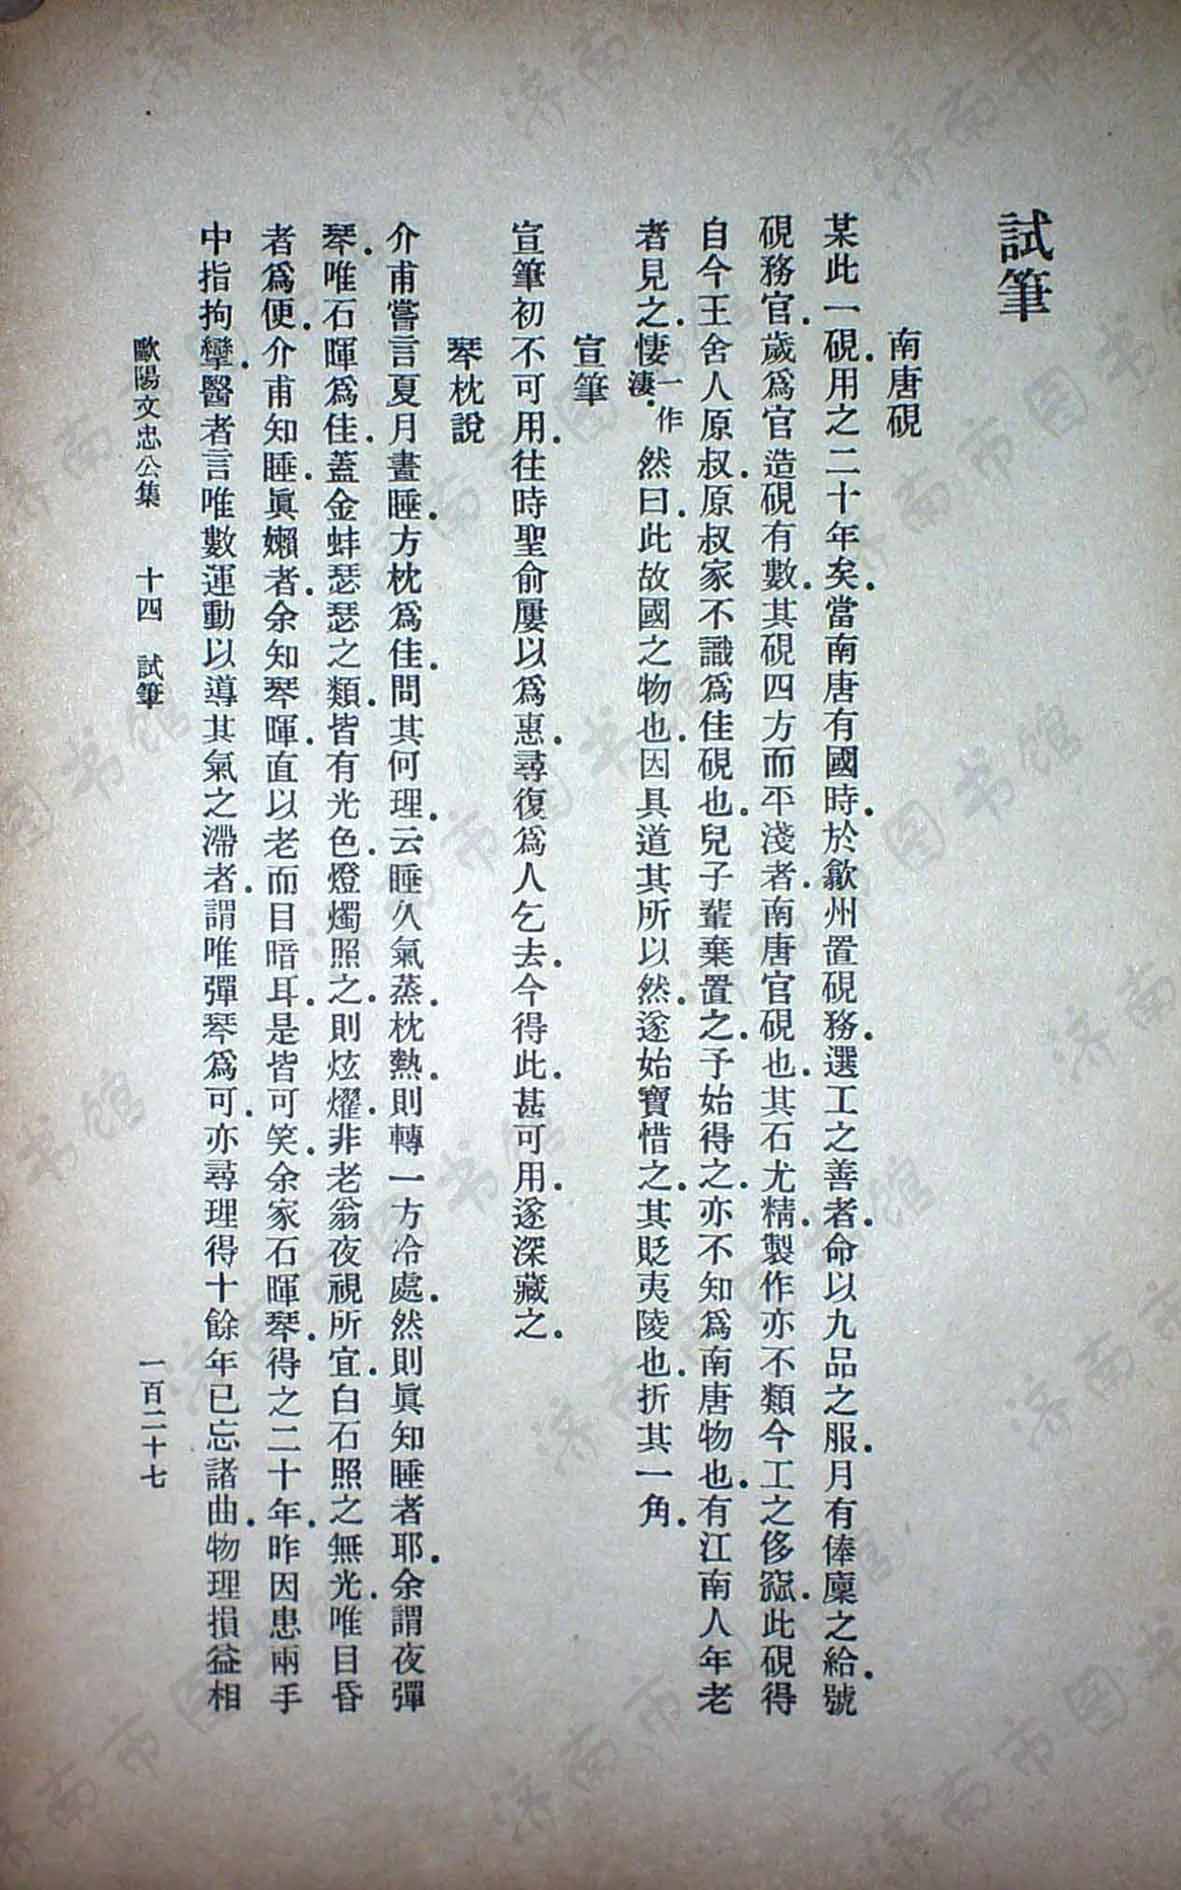 試筆
南唐硯
某此一硯.用之二十年矣.當南唐有國時.於歙州置硯務.選工之善者.命以九品之服.月有俸廩之給.號
硯務官.歲爲官造硯有數.其硯四方而平淺者.南唐官硯也.其石尤精.製作亦不類今工之侈窳.此硯得
自今王舍人原叔.原叔家不識爲佳硯也.兒子輩棄置之.予始得之.亦不知爲南唐物也.有江南人年老
者見之.悽一作淒.然曰.此故國之物也.因具道其所以然.遂始寶惜之.其貶夷陵也.折其一角.
宣筆
宣筆初不可用.往時聖俞屢以爲惠.尋復爲人乞去.今得此.甚可用.遂深藏之.
琴枕說
介甫嘗言夏月晝睡.方枕爲佳.問其何理.云睡久氣蒸.枕熱.則轉一方冷處.然則眞知睡者耶.余謂夜彈
琴.唯石暉爲佳.蓋金蚌瑟瑟之類.皆有光色.燈燭照之.則炫燿.非老翁夜視所宜.白石照之無光.唯目昏
者爲便.介甫知睡.眞嬾者.余知琴暉.直以老而目暗耳.是皆可笑.余家石暉琴.得之二十年.昨因患兩手
中指拘攣.醫者言唯數運動以導其氣之滯者.謂唯彈琴爲可.亦尋理得十餘年已忘諸曲.物理損益相
歐陽文忠公集 十四 試筆 一百二十七
济南市图书馆